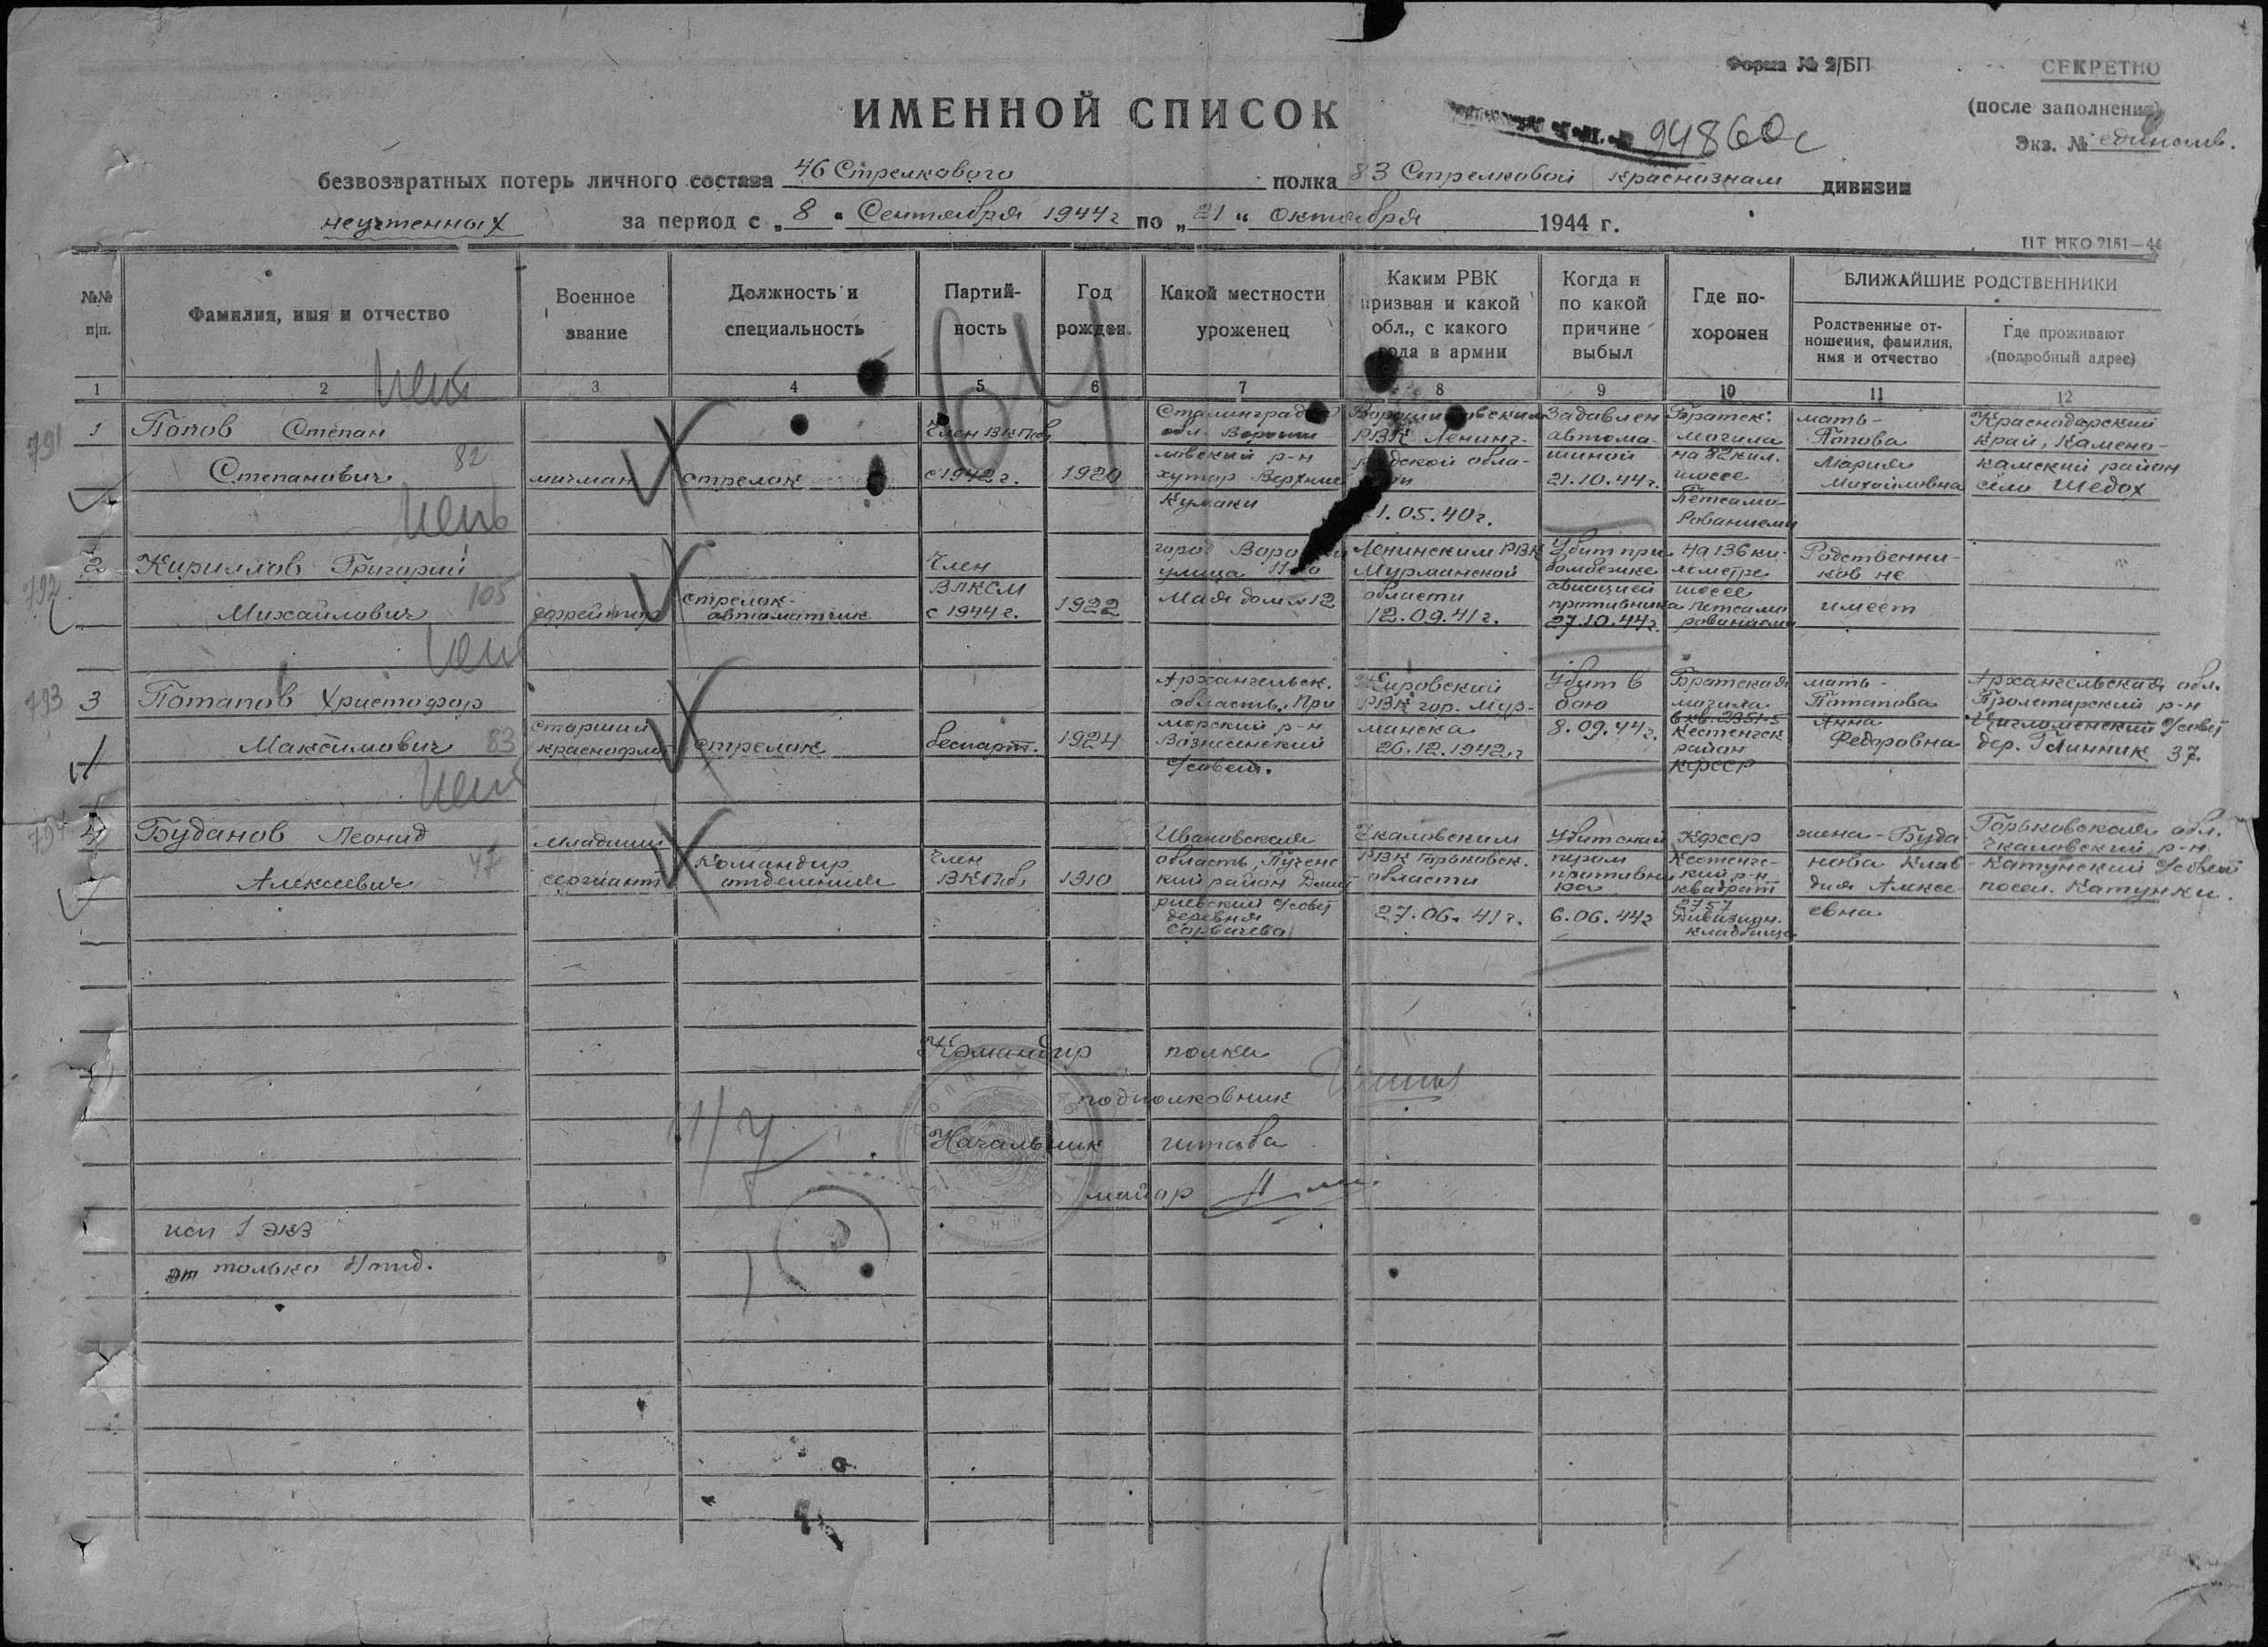 Форма № 2/БП
СЕКРЕТНО
(после заполнения)
Экз. № единств.
ИМЕННОЙ СПИСОК
94860с
безвозвратных потерь личного состава 46 Стрелкового полка 83 Стрелковой краснознам дивизии
неучтенных за период с „8" Сентября 1944г по „21" октября 1944 г.
ЦТ НКО 2151—44
№№ п|п.
Фамилия, имя и отчество
Военное звание
Должность и специальность
Партий-
ность
Год рожден.
Какой местности уроженец
Каким РВК призван и какой обл., с какого года в армии
Когда и по какой причине выбыл
Где по-
хоронен
БЛИЖАЙШИЕ РОДСТВЕННИКИ
Родственные от-
ношения, фамилия, имя и отчество
Где проживают (подробный адрес)
1 2 3 4 5 6 7 8 9 10 11 12
64
791
1
Попов Степан
Степанович
82
мичман
стрелок
Член ВКП(б)
с 1942 г.
1920
Сталинград
обл. Вороши-
ловский р-н
хутор Верхние
Кумаки
РВК Ленинг-
радской обла-
1.05.40г.
Задавлен
автома-
шиной
21.10.44г.
Братск.
могила
на 82 кил.
шоссе
Петсамо-
Рованиеми
мать-
Попова
Мария
Михайловна
Краснодарский
край, Камено-
камский район
село Шедох
792
2
Кириллов Григорий
Михайлович
105
ефрейтор
стрелок-
автоматчик
Член
ВЛКСМ
с 1944г.
1922
город
улица 11-го
Мая дом 12
Ленинским РВК
Мурманской
области
12.09.41г.
Убит при
бомбежке
авиацией
противника
27.10.44г.
на 136 ки-
лометре
шоссе
Петсамо
рованиеми
Родственни-
ков не
имеет
793
3
Потапов Христофор
Максимович
83
старший
краснофлот
стрелок
беспарт.
1924
Архангельск.
область, При
морский р-н
Вознесенский
с/совет.
Кировский
РВК гор. Мур-
манска
26.12.1942г
Убит в
бою
8.09.44г.
Братская
могила
в кв. 2951-5
Кестенгск
район
КФССР
мать-
Потапова
Анна
Федоровна
Архангельская обл.
Пролетарский р-н
Цигломенский с/совет
дер. Глинник 37.
794
4
Буданов Леонид
Алексеевич
47
младший
сержант
Командир
отделения
Член
ВКП(б)
1910
Ивановская
область, Пучеж
кий район Дмит
риевский с/совет
деревня
Сорвачево
Чкаловским
РВК Горьковск.
области
27.06.41г.
Убит снай
пером
противни
ка
6.06.44г
КФССР
Кестенгс-
кий р-н
квадрат
2757
Дивизион.
кладбище
жена-Буда
нова Клав-
дия Алексе-
евна
Горьковская обл.
Чкаловский р-н
Катунский с/совет
посел. Катунки.
Командир полка
подполковник
Начальник штаба
майор
исп 1 экз
только